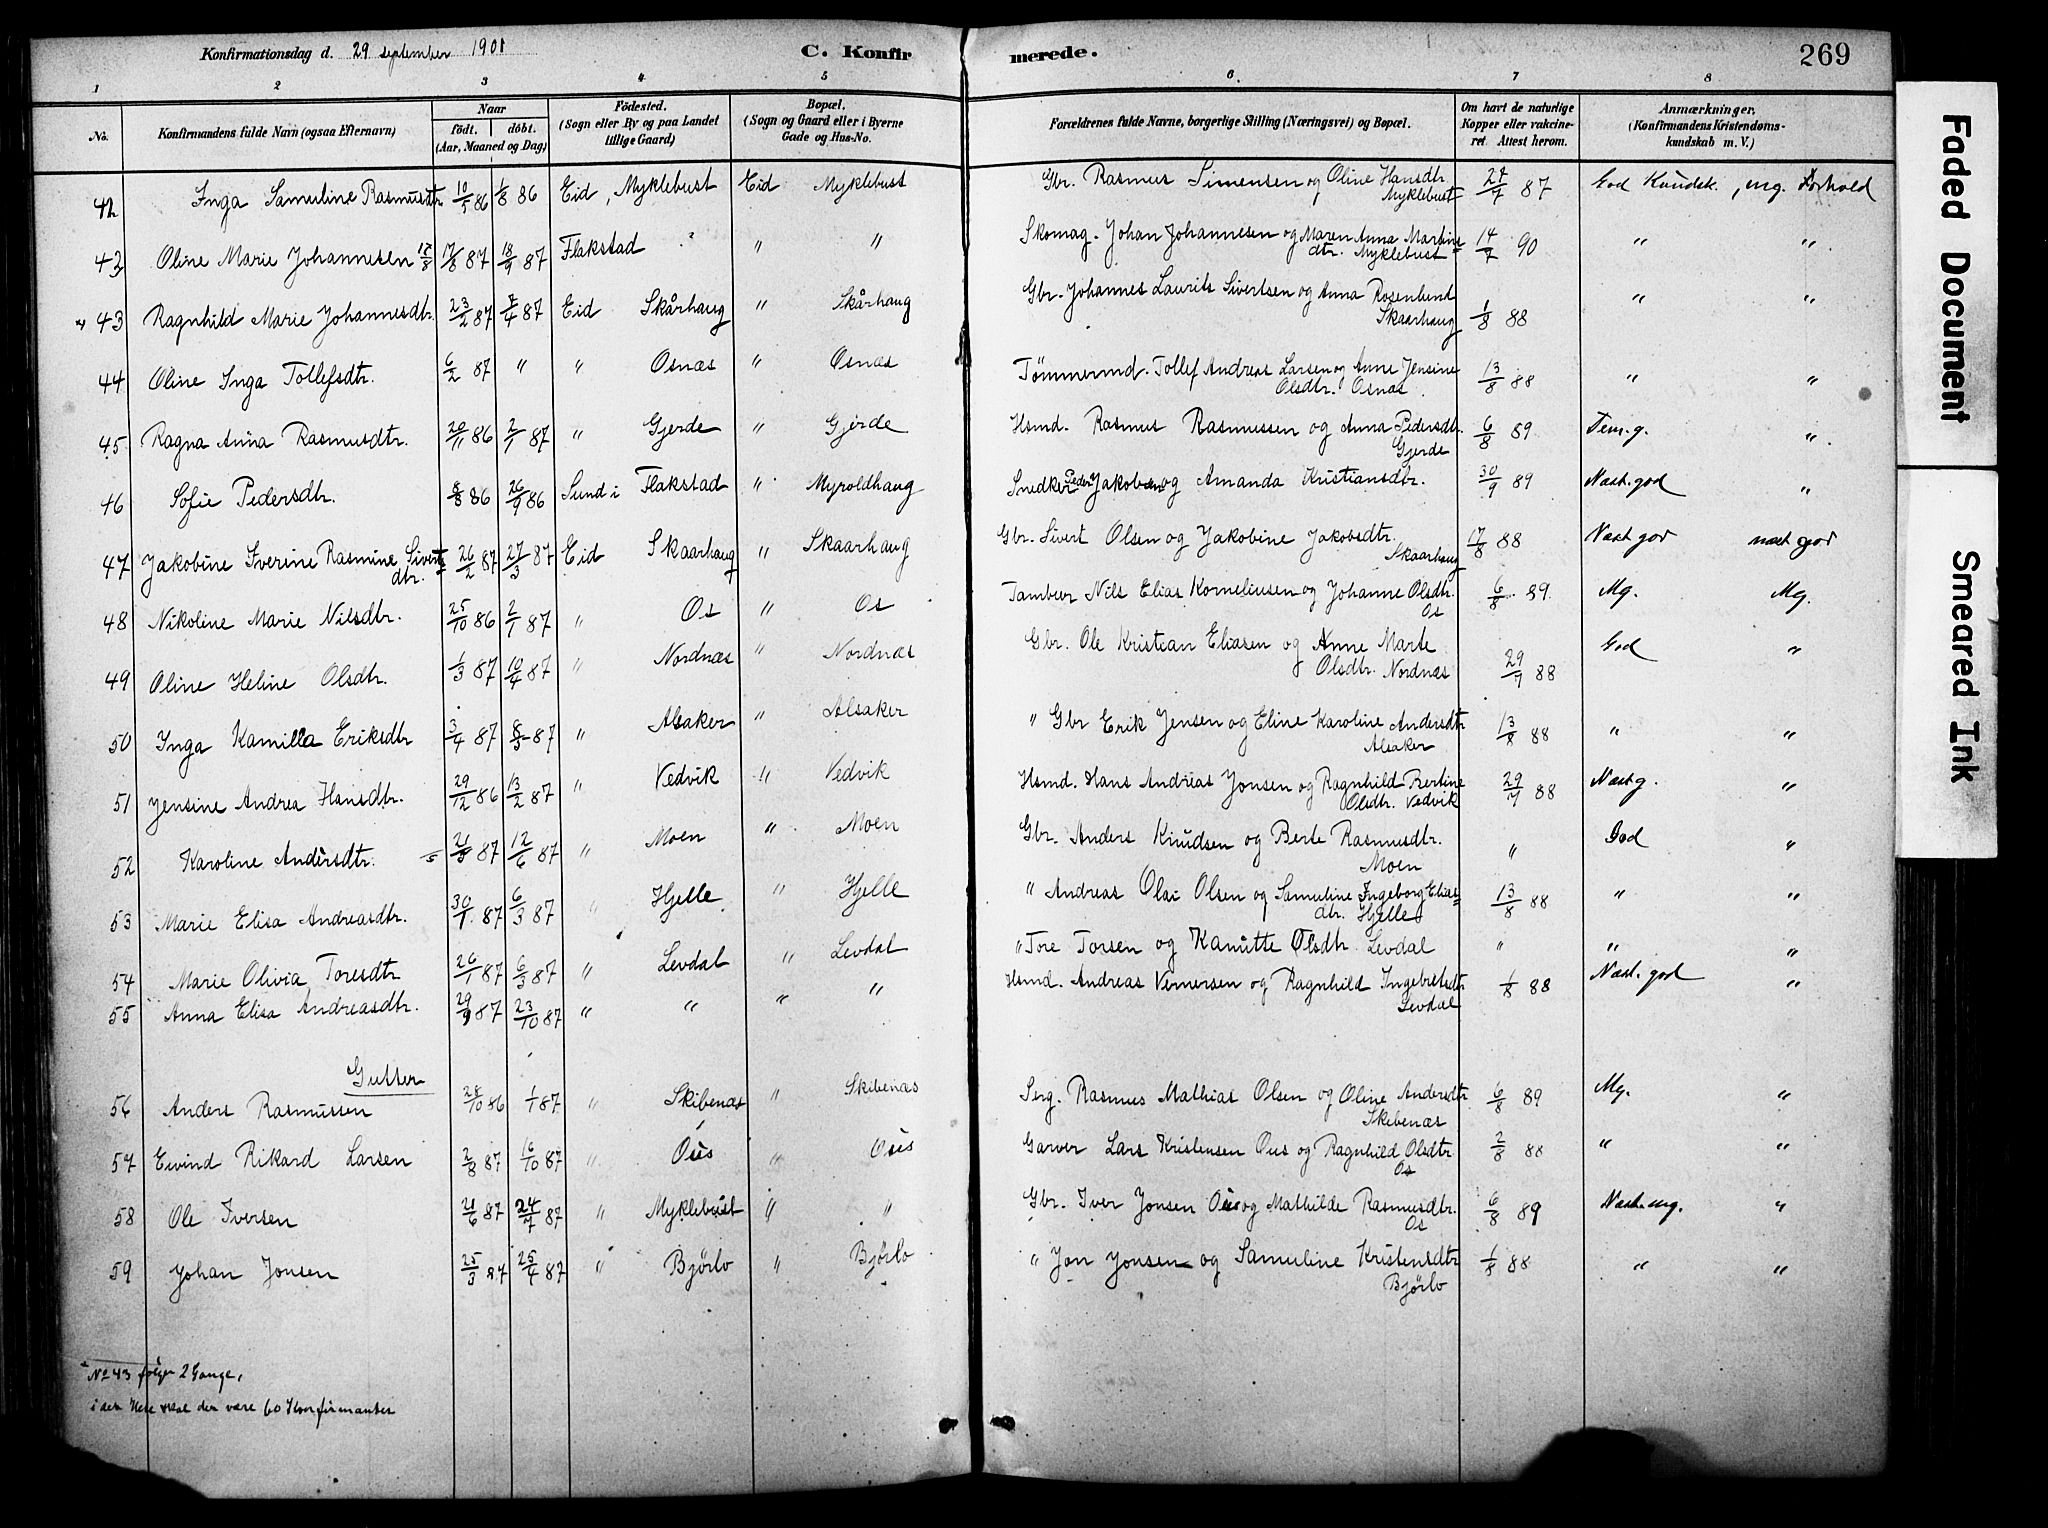 Konfirmationsdag d. 29 september 1901 C. Konfirmerede. 269
1 2 3 4 5 6 7 8
No. Konfirmandens fulde Navn (ogsaa Efternavn) Naar født. døbt. (Aar, Maaned og Dag) Födested. (Sogn eller By og paa Landet tillige Gaard) Bopæl. (Sogn og Gaard eller i Byerne Gade og Hus-No. Forældrenes fulde Navne, borgerlige Stilling (Næringsvei) og Bopæl. Om havt de naturlige Kopper eller vakcineret Attest herom. Anmærkninger, (Konfirmandens Kristendomskundskab m. V.)
42 Inga Samuline Rasmusdtr. 10/5 86 1/8 86 Eid, Myklebust Eid Myklebust Gbr. Rasmus Simensen og Oline Hansdtr Myklebust 27/7 87 God Kundsk., mg. Forhold
43 Oline Marie Johannesen 17/8 17/8 87 18/9 87 Flakstad " " " Skomag. Johan Johannesen og Maren Anna Martinedtr. Myklebust 14/7 90 " "
* 43 Ragnhild Marie Johannesdtr. 23/2 87 7/4 87 Eid Skårhaug " Skårhaug Gbr. Johannes Laurits Sivertsen og Anna Rosenlund Skaarhaug 1/8 88 " "
44 Oline Inga Tollefsdtr. 6/2 87 " " Osnæs " Osnæs Tømmermd. Tollef Andreas Larsen og Anne Jensine Olsdtr. Osnæs 13/8 88 " "
45 Ragna Anna Rasmusdtr. 20/11 86 2/1 87 " Gjerde " Gjerde Hsmd. Rasmus Rasmussen og Anna Pedersdtr. Gjerde 6/8 89 Tem. g. "
46 Sofie Pedersdtr. 8/8 86 26/9 86 Sund i Flakstad " Myroldhaug Snedker Peder Jakobsen og Amanda Kristiansdtr. 30/9 89 Næst. god "
47 Jakobine Iverine Rasmine Sivertsdtr. 26/2 87 27/3 87 Eid Skaarhaug " Skaarhaug Gbr. Sivert Olsen og Jakobine Jakobsdtr. Skaarhaug 17/8 88 Næst god næst god
48 Nikoline Marie Nilsdtr. 25/10 86 2/1 87 " Os " Os Tambur Nils Elias Korneliusen og Johanne Olsdtr. Os 6/8 89. Mg. Mg.
49 Oline Heline Olsdtr. 1/3 87 10/4 87 " Nordnæs " Nordnæs Gbr. Ole Kristian Eliasen og Anne Marte Olsdtr. Nordnæs 29/7 88 God "
50 Inga Kamilla Eriksdtr 3/4 87 8/5 87 " Alsaker " Alsaker " Gbr Erik Jensen og Eline Karoline Andersdtr Alsaker 13/8 88 " "
51 Jensine Andrea Hansdtr. 29/12 86 13/2 87 " Vedvik " Vedvik Hsmd. Hans Andreas Jonsen og Ragnhild Bertine Olsdtr. Vedvik 29/7 88 Næst g. "
52 Karoline Andersdtr. 21/5 87 12/6 87 " Moen " Moen Gbr. Anders Knudsen og Berte Rasmusdtr. Moen " God "
53 Marie Elisa Andreasdtr. 30/1 87 6/3 87 " Hjelle " Hjelle " Andreas Olai Olsen og Samuline Ingeborg Eliasdtr. Hjelle 13/8 88 " "
54 Marie Olivia Toresdtr 26/1 87 6/3 87 " Levdal " Levdal " Tore Torsen og Kanutte Olsdtr Levdal " " "
55 Anna Elisa Andreasdtr. 29/9 87 23/10 87 " " " " Hsmd. Andreas Vemersen og Ragnhild Ingebretsdtr Levdal 1/8 88 Næst. god "
Gutter
56 Anders Rasmussen 28/10 86 1/1 87 " Skibenæs " Skibenæs Serg. Rasmus Mathias Olsen og Oline Andersdtr Skibenæs 6/8 89 Mg. "
57 Eivind Rikard Larsen 2/8 87 16/10 87 " Ous " Ous Garver Lars Kristensen Ous og Ragnhild Olsdtr. Os 2/8 88 " "
58 Ole Iversen 21/6 87 24/7 87 " Myklebust " " Gbr. Iver Jonsen Ous og Mathilde Rasmusdtr. Os 6/8 89 Næst. mg. "
59 Johan Jonsen 25/3 87 25/4 87 " Bjørlo " Bjørlo " Jon Jonsen og Samuline Kristensdtr Bjørlo 1/8 88 " "
* No 43 følger 2 Gange,
i det Hele skal der være 60 Konfirmanter
Faded Document
Smeared Ink